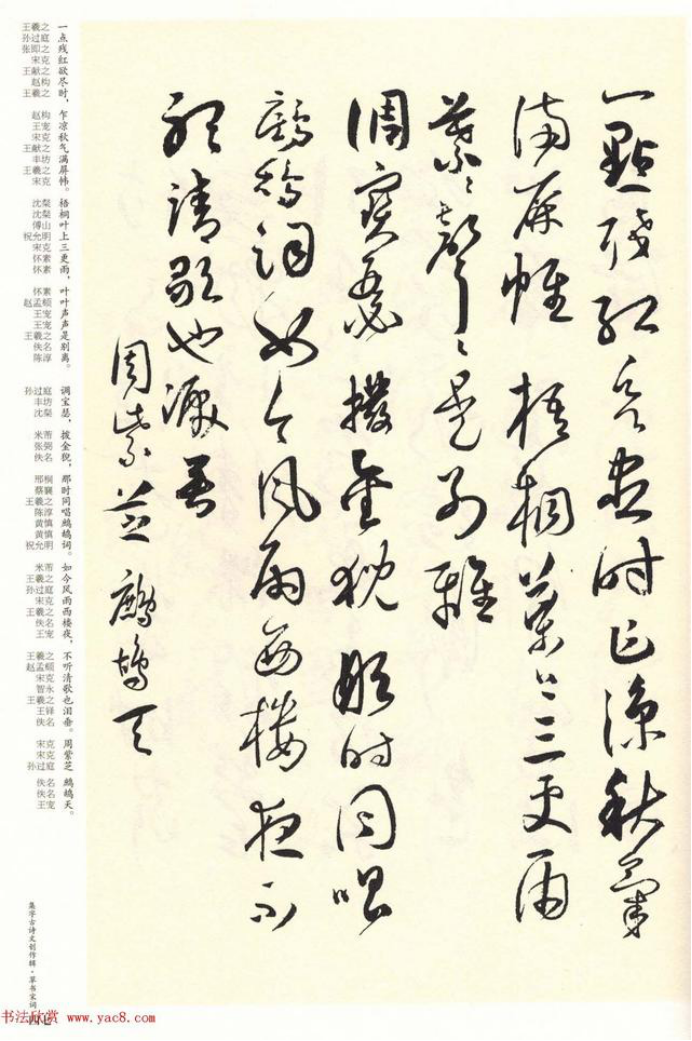 一點殘紅欲盡時乍涼秋氣
滿屏帷梧桐葉上三更雨
葉〻聲〻是別離
調寶瑟撥金猊那時同唱
鷓鴣詞如今風雨西樓夜不
聽清歌也淚垂
周紫芝鷓鴣天
一点残红欲尽时，乍凉秋气满屏帏。梧桐叶上三更雨，叶叶声声是别离。 调宝瑟，拨金猊，那时同唱鹧鸪词。如今风雨西楼夜，不听清歌也泪垂。 周紫芝 鹧鸪天。
王羲之 孙过庭 张即之 宋克 王献之 赵构 王羲之 赵构 王宠 宋克 王献之 丰坊 王羲之 宋克 沈粲 沈粲 傅山 祝允明 宋克 怀素 怀素 怀素 赵孟頫 王宠 王宠 王羲之 佚名 陈淳 孙过庭 丰坊 沈粲 米芾 张弼 佚名 邢侗 蔡襄 王羲之 陈淳 黄慎 黄慎 祝允明 米芾 王羲之 孙过庭 宋克 王羲之 佚名 王宠 王羲之 赵孟頫 宋克 智永 王羲之 王铎 佚名 宋克 宋克 孙过庭 佚名 佚名 王宠
集字古诗文创作辑·草书宋词
四七
书法欣赏 www.yac8.com